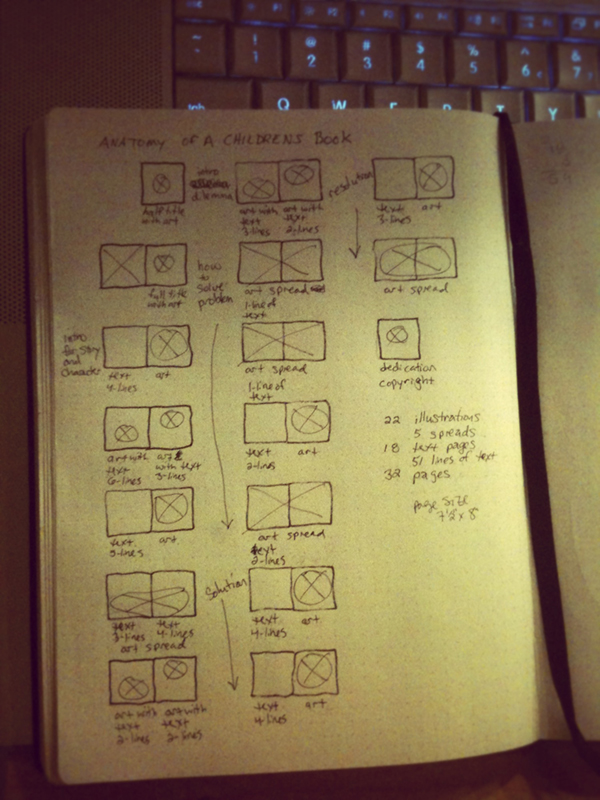 ~
!
@
#
$
%
^
&
`
1
2
3
4
5
6
7
tab
Q
W
E
R
T
Y
ANATOMY OF A CHILDRENS BOOK
half title
with art
full title
with art
intro
for story
and
character
text
4-lines
art
art with
text
6-lines
art
with text
3-lines
text
5-lines
art
text
3-lines
text
4-lines
art spread
art with
text
2-lines
art with
text
2-lines
intro
dilemma
art with
text
3-lines
art with
text
2-lines
how
to
solve
problem
art spread
1-line of
text
art spread
1-line of
text
text
2-lines
art
art spread
text
2-lines
Solution
text
4-lines
art
text
4-lines
art
resolution
text
3-lines
art
art spread
dedication
copyright
22 illustrations
5 spreads
18 text pages
51 lines of text
32 pages
page size